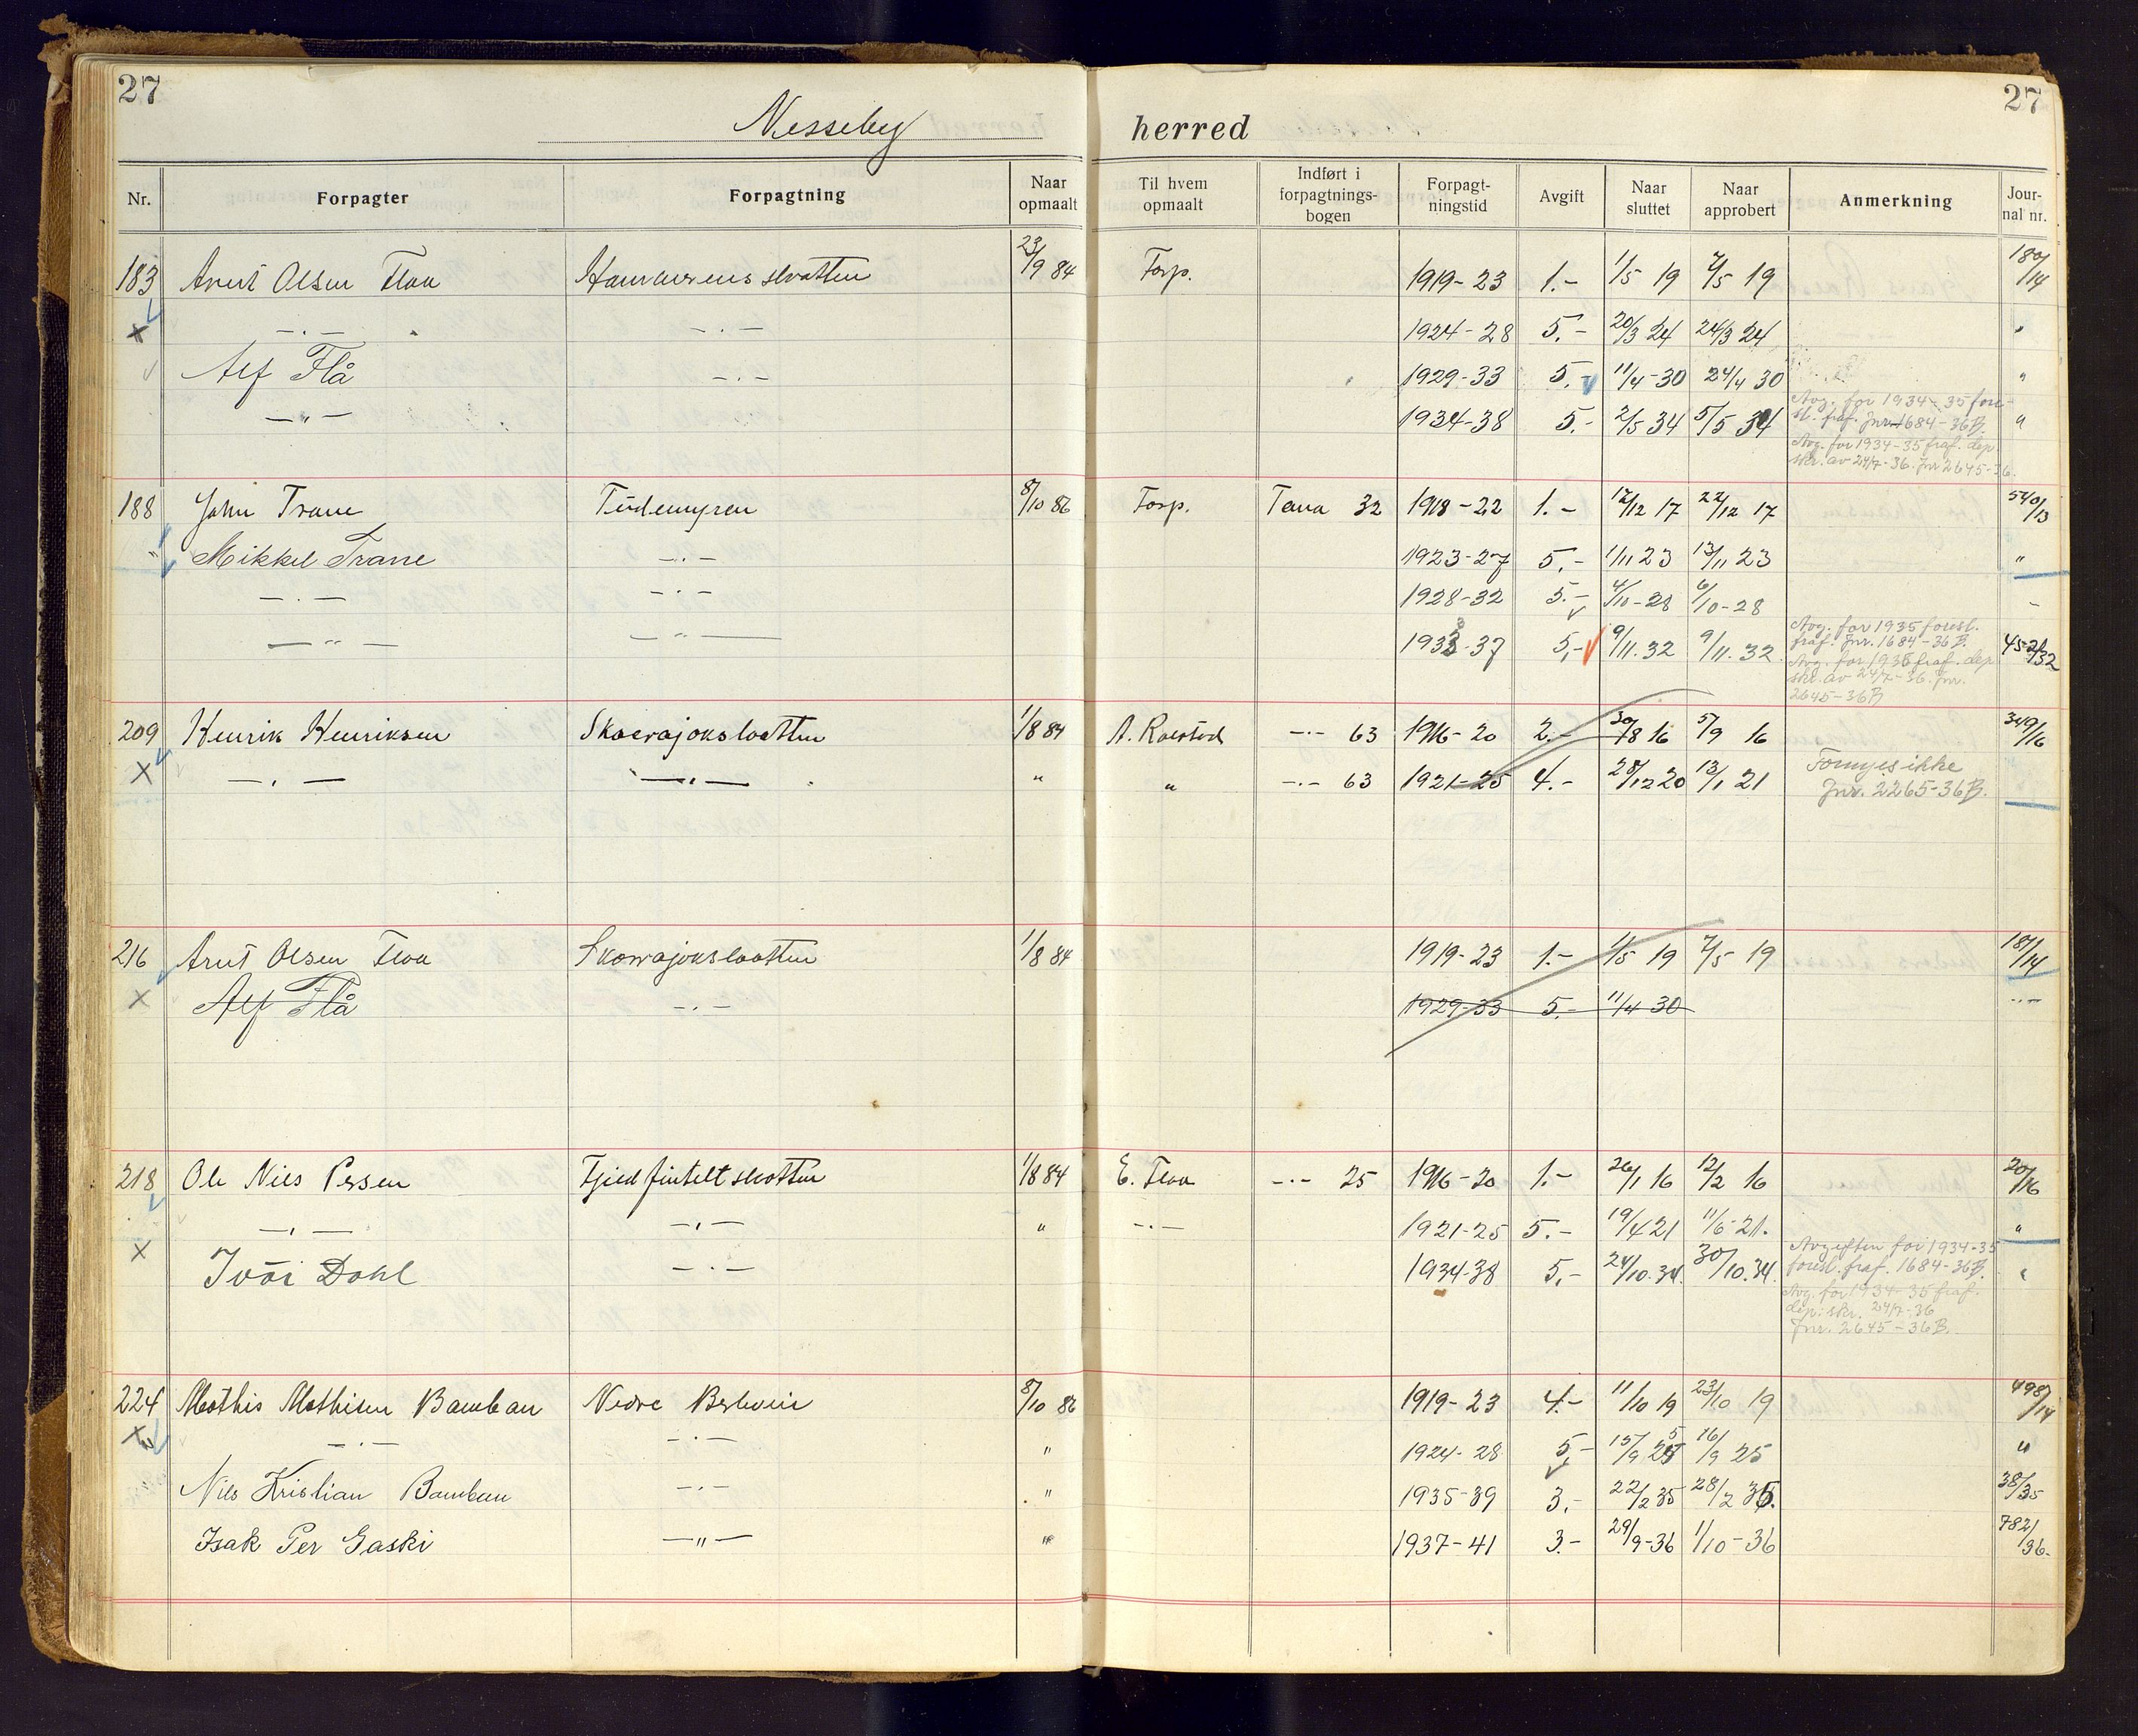 27 27
Nesseby herred
Nr. Forpagter Forpagtning Naar opmaalt Til hvem opmaalt Indført i forpagtnings-bogen Forpagt-ningstid Avgift Naar sluttet Naar approbert Anmerkning Jour-nal nr.
183 Arnt Olsen Flaa 23/9 84 Forp. 1919-23 1.- 1/5 19 7/5 19 180/14
x -.- -.- 1924-28 5.- 20/3 24 24/3 24 "
Alf Flå -.- 1929-33 5.- 11/4-30 24/4 30 "
-"- 1934-38 5.- 2/5 34 5/5 34 "
Avg. for 1934-35 fore-
sl. fraf. Jnr. 1684-36 B.
Avg. for 1934-35 fraf. dep.
skr. av 24/7-36. Jnr 2645-36.
188 John Trane Tüdemyren 8/10 86 Forp. Tana 32 1918-22 1.- 12/12 17 22/12 17 540/13
" Mikkel Trane -.- 1923-27 5.- 1/11 23 13/11 23 "
-.- -.- 1928-32 5.- 4/10-28 6/10-28 -
-"- -"- 1933-37 5,- 9/11.32 9/11.32 452/32
Avg. for 1935 foresl.
fraf. Jnr. 1684-36 B.
Avg. for 1935 fraf. dep
skr. av 24/7-36. Jnr.
2645-36 B
209 Henrik Henriksen Skaerajokslaatten 1/8 84 A. Raestad -.- 63 1916-20 2.- 30/8 16 5/9 16 349/16
X -.- -.- " " -.- 63 1921-25 4.- 28/12 20 13/1 21
Fornyes ikke
Jnr. 2265-36 B.
216 Arnt Olsen Flaa Skaerajokslaatten 1/8 84 1919-23 1.- 1/5 19 7/5 19 181/14
X Alf Flå -.- 1929-33 5.- 11/4 30 -.-
218 Ole Nils Persen 1/8 84 E. Flaa -.- 25 1916-20 1.- 26/1 16 12/2 16 20/16
-.- -.- " -.- 1921-25 5.- 19/4 21 11/6-21. "
X Ivar Dahl -.- 1934-38 5,- 24/10.34. 30/10.34. "
Avgiften for 1934-35
foresl. fraf. 1684-36 B.
Avg. for 1934-35 fraf.
dep. skr. 24/7-36
Jnr. 2645-36 B.
224 Mathis Mathisen Banban Nedre 8/10 86 1919-23 4.- 11/10 19 23/10 19 498/14
X -.- -.- " 1924-28 5,- 15/9 25 16/9 25 "
Nils Kristian Banban -.- " 1935-39 3,- 22/2 35 28/2 35. 38/35
Isak Per Gaski -"- " 1937-41 3.- 29/9-36 1/10-36 782/36.